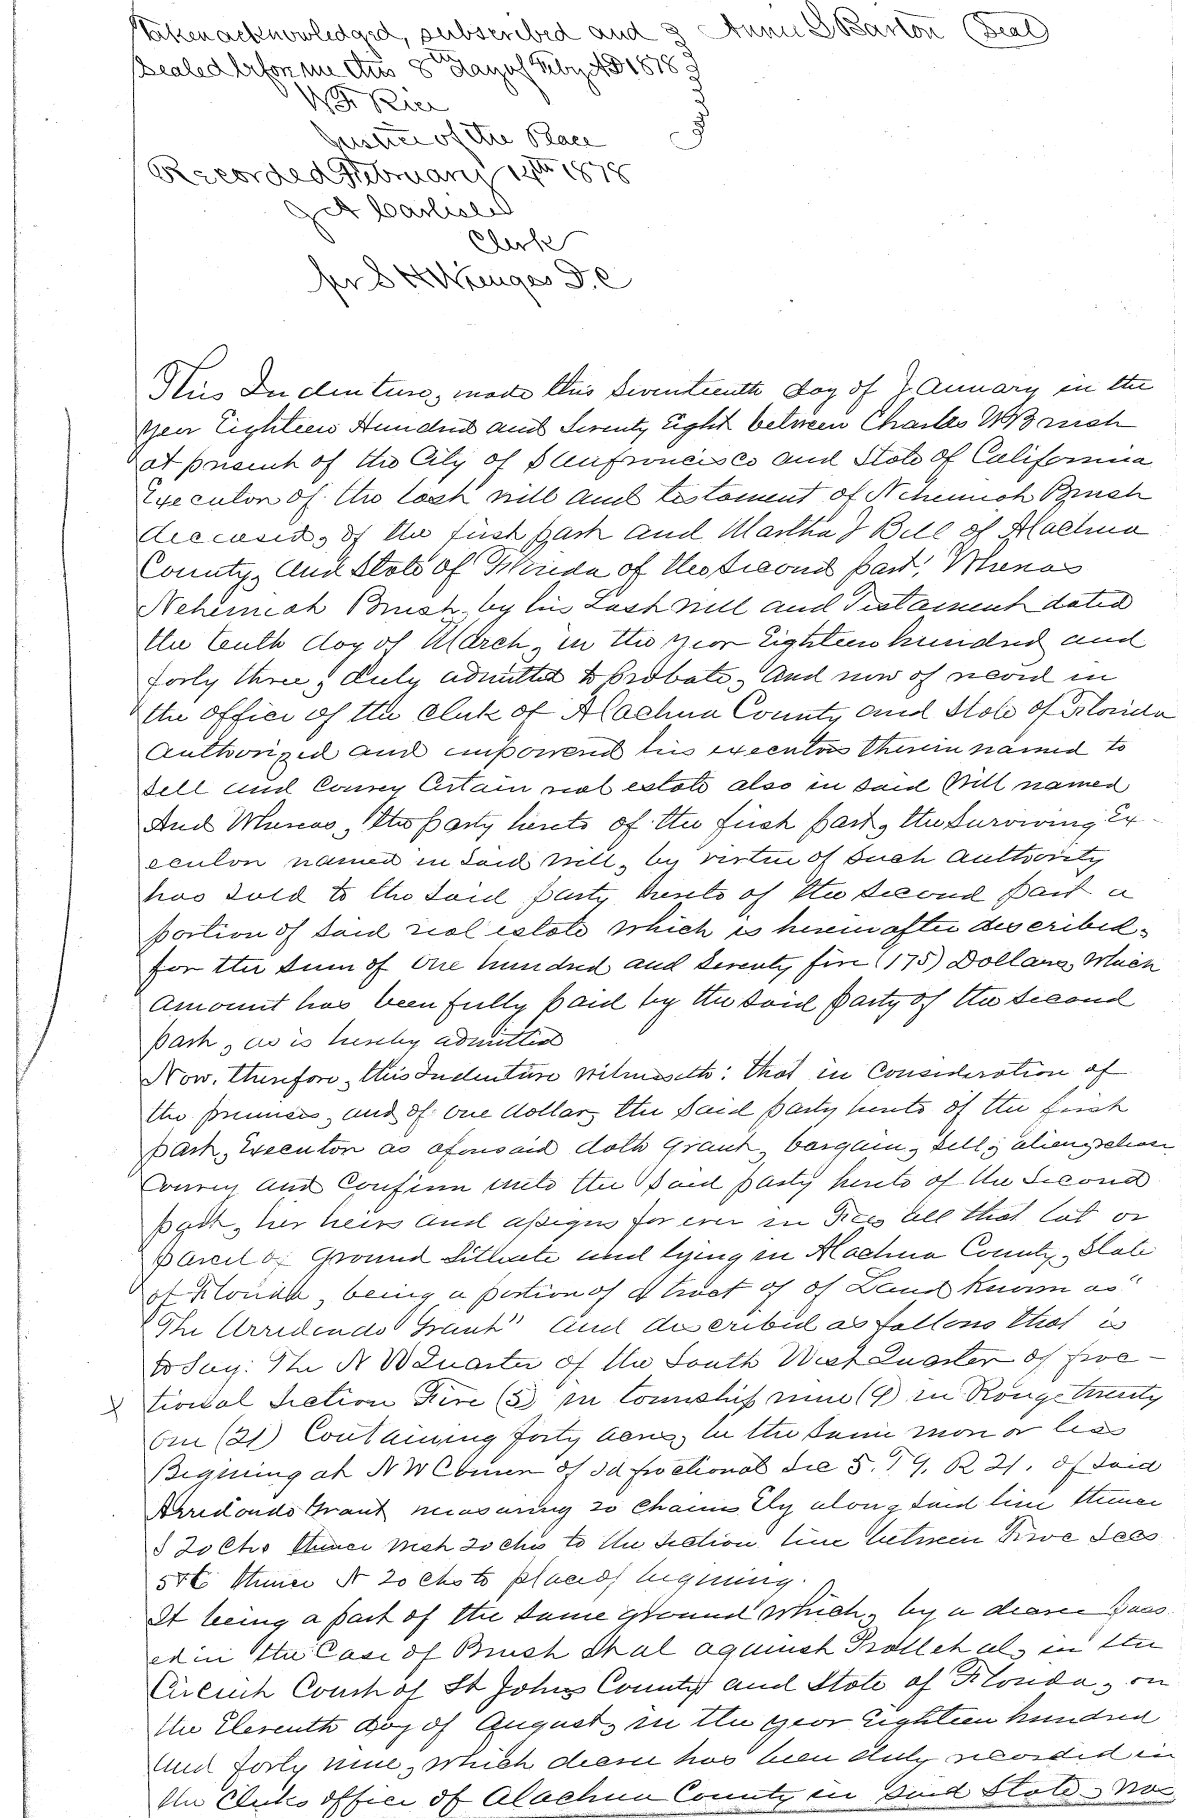 Taken acknowledged, subscribed and } Annie S Barton (Seal)
Sealed before me this 8th day of Feby AD 1878 }
W F Rice
Justice of the Peace
Recorded February 14th 1878
J A Carlisle
Clerk
pr S H Wienges D.C
This Indenture, made this Seventeenth day of January in the
year Eighteen Hundred and Seventy Eight between Charles W Brush
at present of the City of Sanfrancisco and State of California
Executor of the last will and testament of Nehemiah Brush
deceased, of the first part and Martha J Bell of Alachua
County, and State of Florida of the Second part, Whereas
Nehemiah Brush, by his Last will and Testament dated
the tenth day of March, in the year Eighteen hundred and
forty three, duly admitted to probate, And now of record in
the office of the clerk of Alachua County and State of Florida
authorized and empowered his executors therein named to
sell and Convey Certain real estate also in said Will named
And Whereas, the party hereto of the first part, the Surviving Ex-
ecutor named in said will, by virtue of such authority
has sold to the said party hereto of the Second part a
portion of said real estate which is herein after described,
for the sum of One hundred and Seventy five (175) Dollars, which
amount has been fully paid by the said party of the second
part, as is hereby admitted
Now, therefore, this Indenture witnesseth: that in consideration of
the premises, and of one dollar, the said party hereto of the first
part, Executor as aforesaid doth grant, bargain, sell, alien, release
Convey and Confirm unto the said party hereto of the Second
part, her heirs and assigns for ever in Fee, all that lot or
parcel of ground Situate and lying in Alachua County, State
of Florida, being a portion of a tract of of Land known as "
"The Arredondo Grant" and described as follows that is
to Say: The N W Quarter of the South West Quarter of frac-
tional Section Five (5) in township nine (9) in Range twenty
One (21) Containing forty acres, be the same more or less
Begining at N W Corner of sd fractional Sec 5. T 9. R 21. of said
Arredondo Grant measuring 20 chains Ely along said line thence
S 20 Chs thence West 20 chs to the section line between Frac Secs
5 & 6 thence N 20 chs to place of begining.
It being a part of the same ground which, by a decree pass
ed in the Case of Brush et al against Pratt et al, in the
Circuit Court of St Johns County and State of Florida, on
the Eleventh day of August, in the year Eighteen hundred
and forty nine, which decree has been duly recorded in
the Clerks office of Alachua County in said State, was